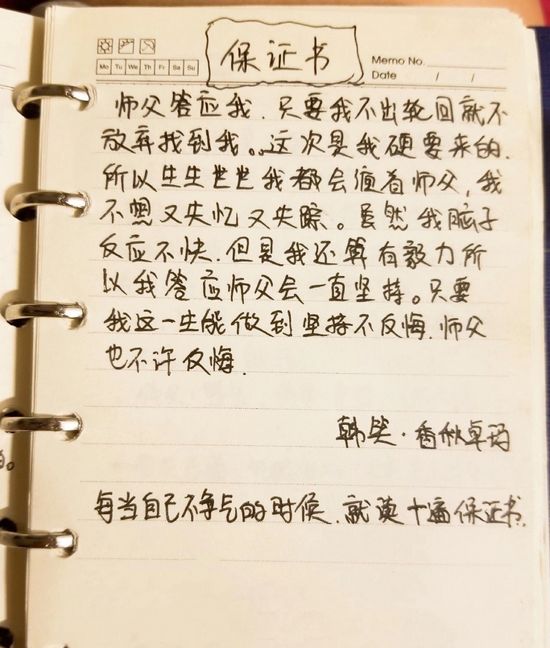 保证书
Mo Tu We Th Fr Sa Su
Memo No.
Date / /
师父答应我.只要我不出轮回就不
放弃找到我。这次是我硬要来的.
所以生生世世我都会缠着师父,我
不想又失忆又失踪。虽然我脑子
反应不快.但是我还算有毅力所
以我答应师父会一直坚持。只要
我这一生能做到坚持不反悔.师父
也不许反悔.
韩笑·香秋卓玛
每当自己不争气的时候.就读十遍保证书.